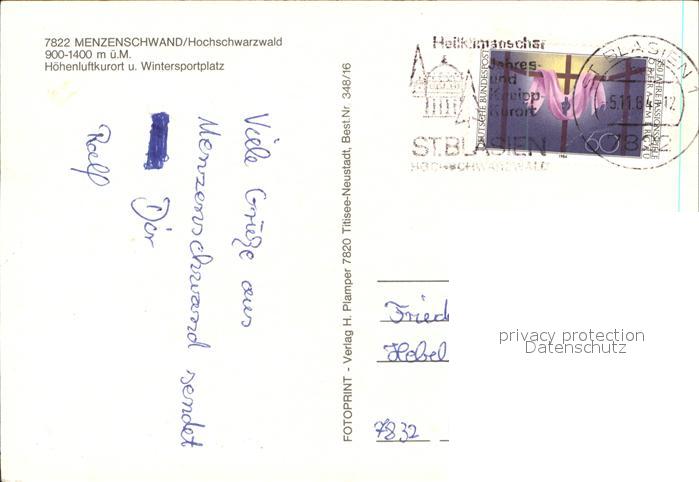 7822 MENZENSCHWAND/Hochschwarzwald
900-1400 m ü.M.
Höhenluftkurort u. Wintersportplatz
Viele Grüße aus
Menzenschwand sendet
Dir
Ralf
FOTOPRINT - Verlag H. Plamper 7820 Titisee-Neustadt, Best.Nr 348/16
Heilklimatischer
Jahres-
und
Kneipp-
Kurort
ST.BLASIEN
HOCHSCHWARZWALD
DEUTSCHE BUNDESPOST
60
1984
350 JAHRE PASSIONSSPIELE
OBERAMMERGAU
ST. BLASIEN 1
-5.11.84-12
7822
Fried
Hebel
7832
privacy protection
Datenschutz